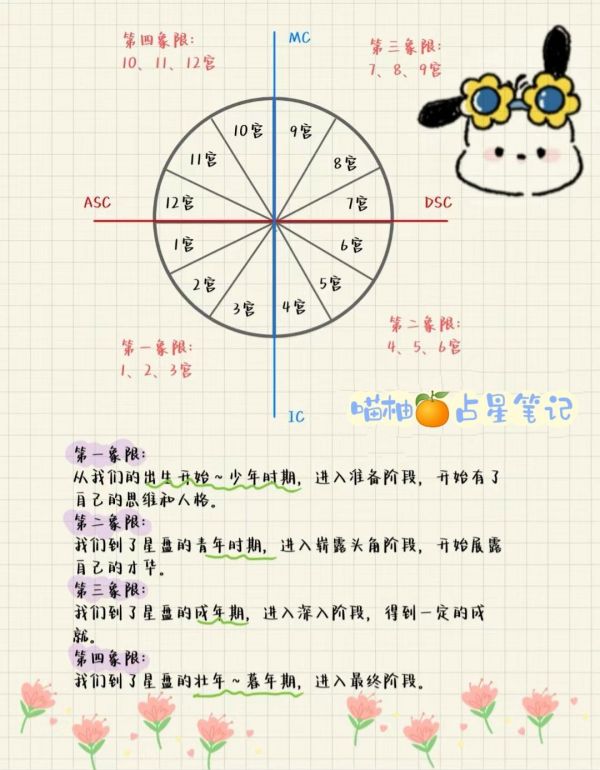 第四象限:
10、11、12宫
MC
第三象限:
7、8、9宫
10宫
9宫
11宫
8宫
ASC
12宫
7宫
DSC
1宫
6宫
2宫
5宫
3宫
4宫
第一象限:
1、2、3宫
第二象限:
4、5、6宫
IC
喵柚占星笔记
第一象限:
从我们的出生开始~少年时期,进入准备阶段,开始有了
自己的思维和人格。
第二象限:
我们到了星盘的青年时期,进入崭露头角阶段,开始展露
自己的才华。
第三象限:
我们到了星盘的成年期,进入深入阶段,得到一定的成
就。
第四象限:
我们到了星盘的壮年~暮年期,进入最终阶段。